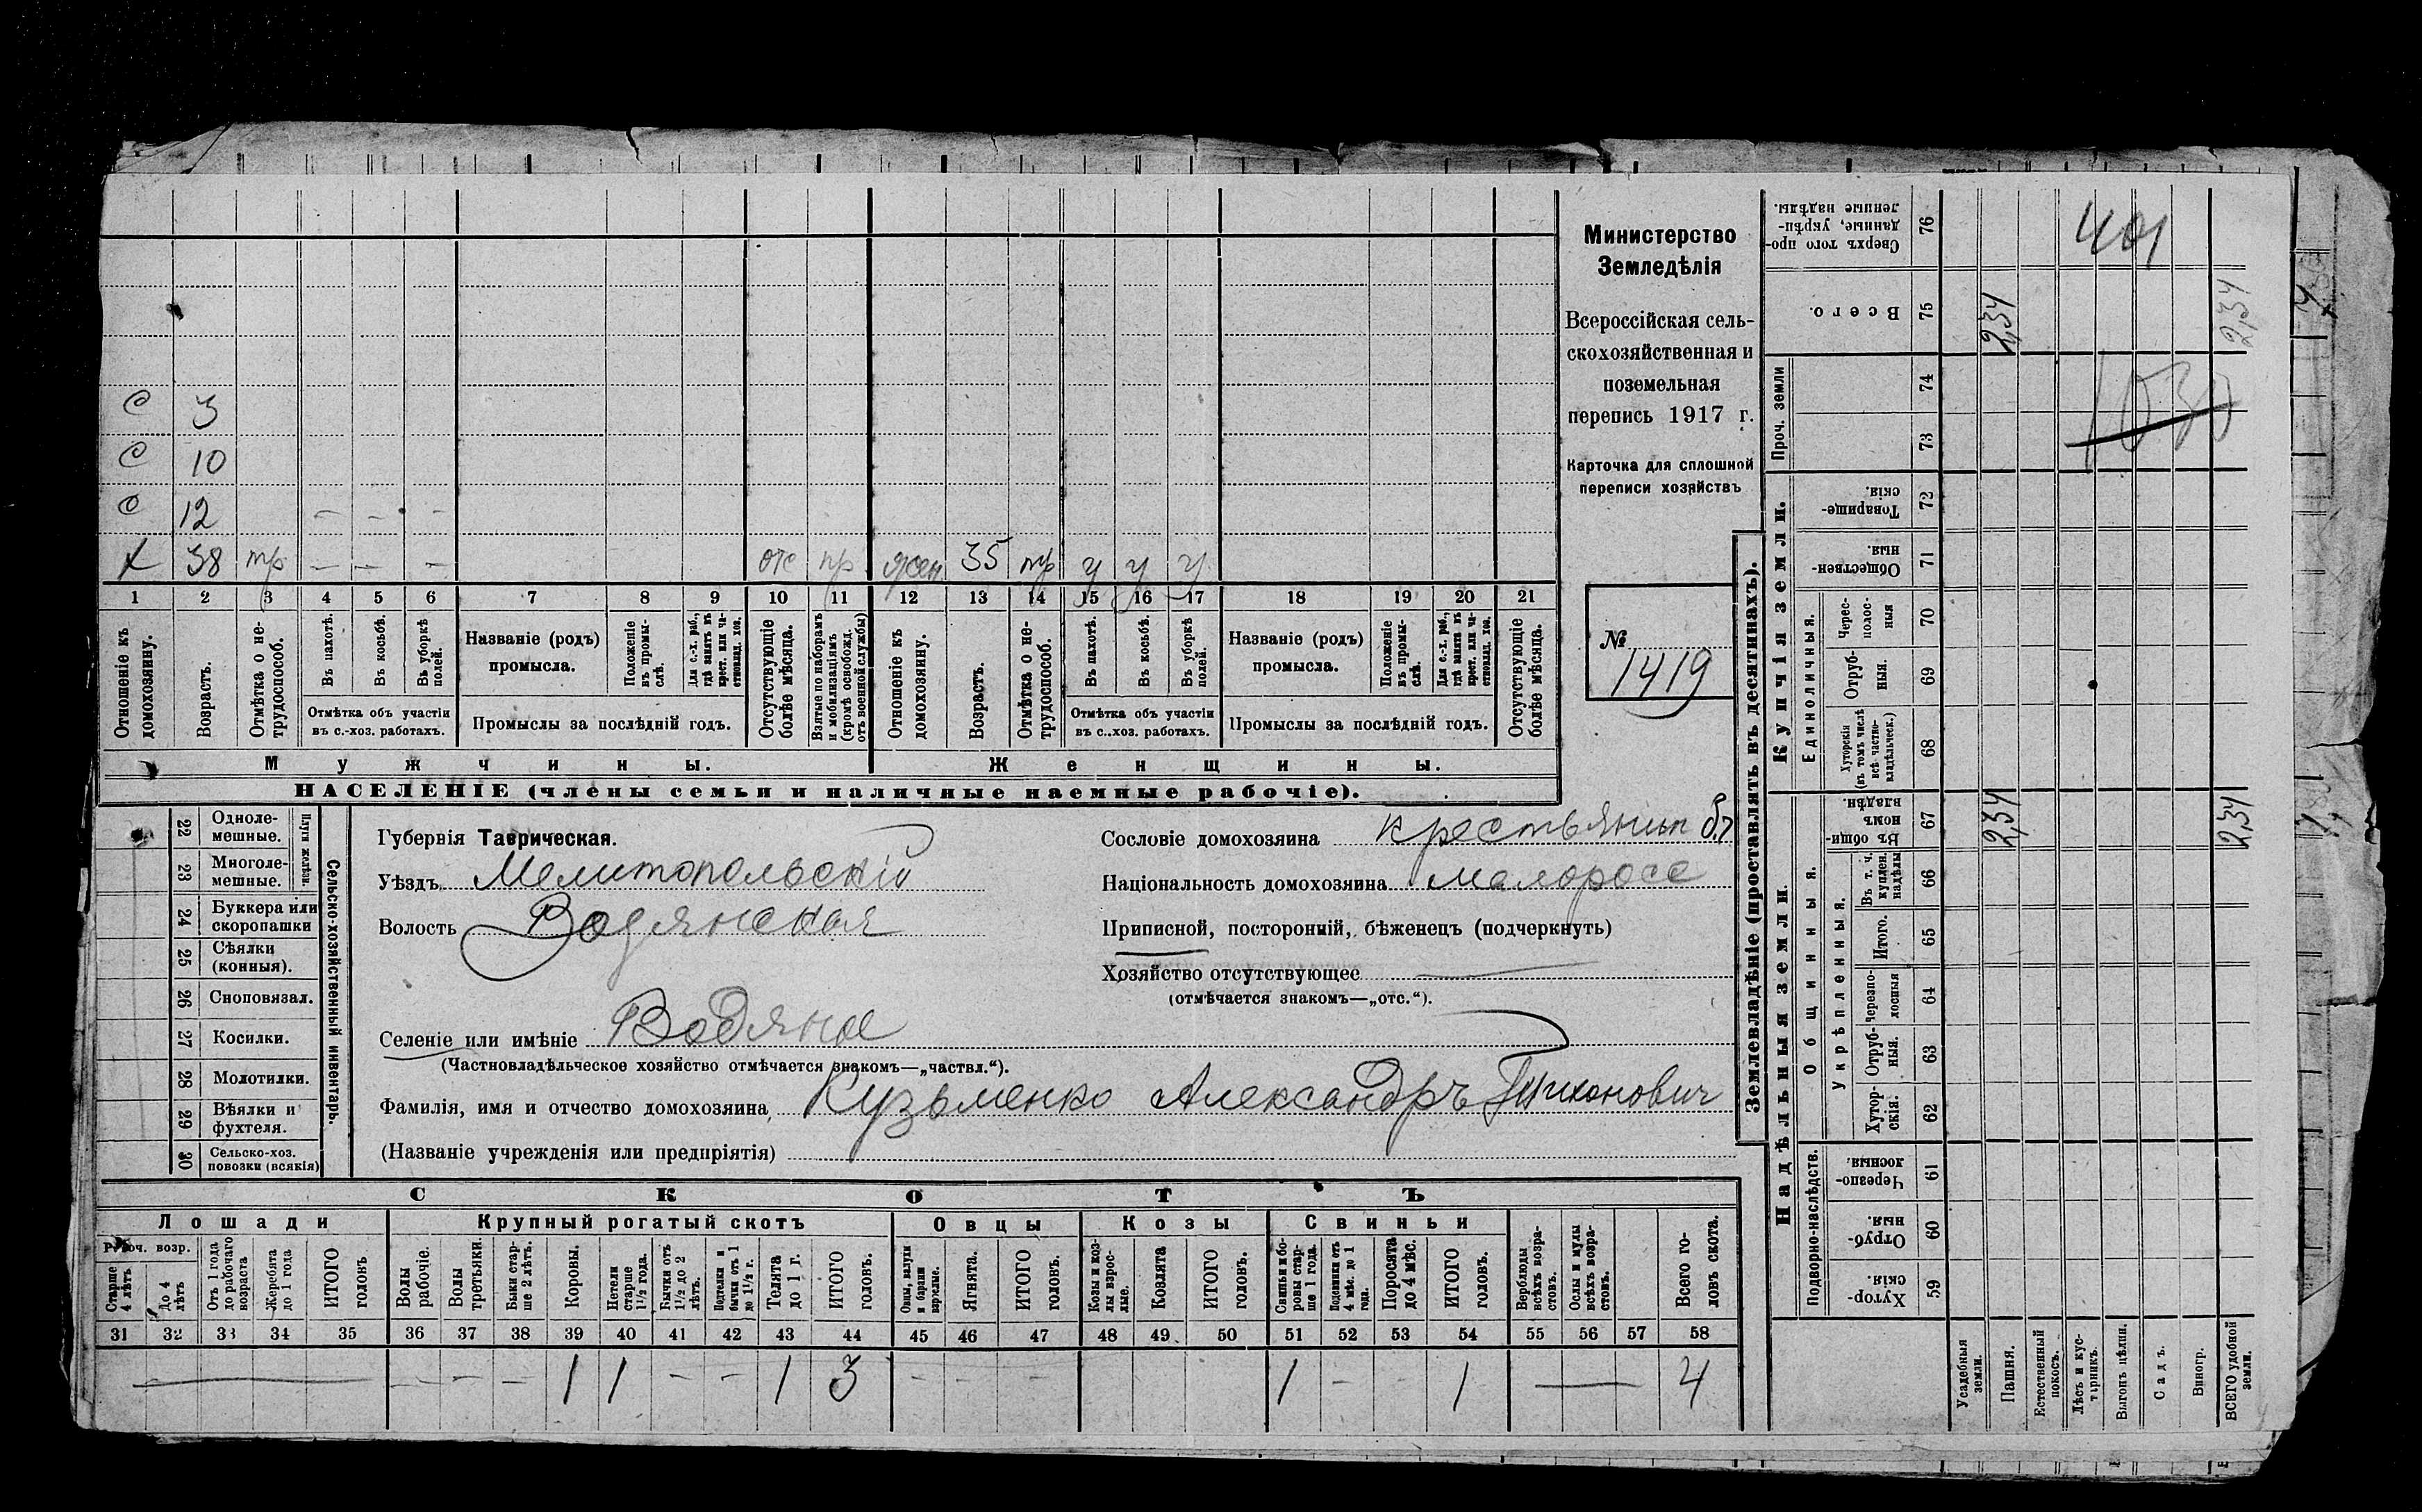 С 3
С 10
С 12 — — —
х 38 тр — — — отс пр жен 35 тр у у у
1 2 3 4 5 6 7 8 9 10 11 12 13 14 15 16 17 18 19 20 21
Отношеніе къ домохозяину.
Возрастъ.
Отмѣтка о не-трудоспособ.
Въ пахотѣ.
Въ косьбѣ.
Въ уборкѣ полей.
Отмѣтка объ участіи
въ с.-хоз. работахъ.
Названіе (родъ)
промысла.
Положеніе въ промы-слѣ.
Для с.-х. раб., гдѣ занятъ въ крест. или ча-стновлад. хоз.
Промыслы за послѣдній годъ.
Отсутствующіе болѣе мѣсяца.
Взятые по наборамъ и мобилизаціямъ (кромѣ освобожд. отъ военной службы)
Отношеніе къ домохозяину.
Возрастъ.
Отмѣтка о не-трудоспособ.
Въ пахотѣ.
Въ косьбѣ.
Въ уборкѣ полей.
Отмѣтка объ участіи
въ с..хоз. работахъ.
Названіе (родъ)
промысла.
Положеніе въ промы-слѣ.
Для с.-х. раб., гдѣ занята въ крест. или ча-стновлад. хоз.
Промыслы за послѣдній годъ.
Отсутствующіе болѣе мѣсяца.
Мужчины.
Женщины.
НАСЕЛЕНІЕ (члены семьи и наличные наемные рабочіе).
Министерство
Земледѣлія
Всероссійская сель-
скохозяйственная и
поземельная
перепись 1917 г.
Карточка для сплошной
переписи хозяйствъ
№
1419
Сельско-хозяйственный инвентарь.
Плуги желѣзн.
22 Одноле-
мешные.
23 Многоле-
мешные.
24 Буккера или
скоропашки
25 Сѣялки
(конныя).
26 Сноповязал.
27 Косилки.
28 Молотилки.
29 Вѣялки и
фухтеля.
30 Сельско-хоз.
повозки (всякія)
Губернія Таврическая.
Уѣздъ Мелитопольскій
Волость Водянская
Селеніе или имѣніе Водяное
(Частновладѣльческое хозяйство отмѣчается знакомъ—„частвл.“).
Фамилія, имя и отчество домохозяина Кузьменко Александръ Тихонович
(Названіе учрежденія или предпріятія)
Сословіе домохозяина крестьянин
Національность домохозяина малоросс
Приписной, посторонній, бѣженец (подчеркнуть)
Хозяйство отсутствующее —
(отмѣчается знакомъ—„отс.“).
СКОТЪ
Лошади Крупный рогатый скотъ Овцы Козы Свиньи
Рабоч. возр.
Старше 4 лѣтъ
До 4 лѣтъ
Отъ 1 года до рабочаго возраста
Жеребята до 1 года
ИТОГО головъ
Волы рабочіе.
Волы третьяки.
Быки стар-ше 2 лѣтъ.
Коровы.
Нетели старше 1½ года.
Бычки отъ 1½ до 2 лѣтъ.
Подтелки и бычки отъ 1 до 1½ г.
Телята до 1 г.
ИТОГО головъ.
Овцы, валухи и бараны взрослые.
Ягнята.
ИТОГО головъ.
Козы и коз-лы взрос-лые.
Козлята
ИТОГО головъ.
Свиньи и бо-ровы стар-ше 1 года.
Подсвинки отъ 4 мѣс. до 1 года.
Поросята до 4 мѣс.
ИТОГО головъ.
Верблюды всѣхъ возра-стовъ.
Ослы и мулы всѣхъ возра-стовъ.
Всего го-ловъ скота.
31 32 33 34 35 36 37 38 39 40 41 42 43 44 45 46 47 48 49 50 51 52 53 54 55 56 57 58
— — — — 1 1 — — 1 3 — — — 1 — — 1 — 4
Землевладѣніе (проставлять въ десятинахъ).
Надѣльныя земли.
Купчія земли.
Проч. земли
Подворно-наслѣдств.
Общинныя.
Укрѣпленныя.
Единоличныя.
Хутор-скія. 59
Отруб-ныя. 60
Черезпо-лосныя. 61
Хутор-скія. 62
Отруб-ныя. 63
Черезпо-лосныя 64
Итого. 65
Въ т. ч. куплен. надѣлы 66
Въ общин-номъ владѣн. 67
Хуторскія (въ томъ числѣ всѣ частно-владѣльческ.) 68
Отруб-ныя. 69
Черес-полос-ныя 70
Обществен-ныя. 71
Товарище-скія. 72
73
74
Всего. 75
Сверхъ того про-данные, укрѣп-ленные надѣлы. 76
Усадебныя земли.
Пашня. 2,34 2,34
Естественный покосъ.
Лѣсъ и кус-тарникъ.
Выгонъ цѣлин.
Садъ.
Виногр.
ВСЕГО удобной земли. 2,34 2,34
401